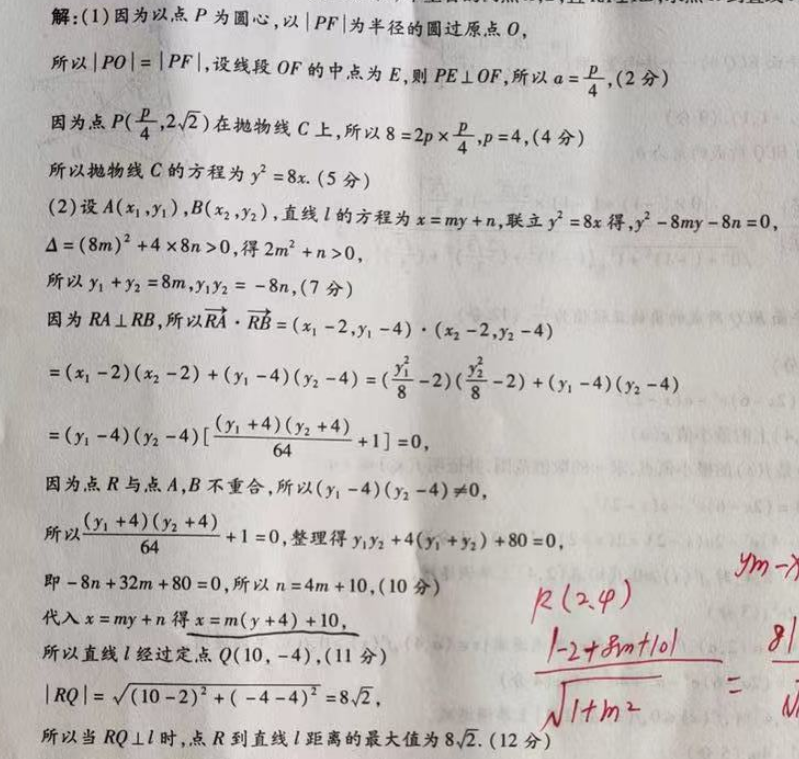 解:(1)因为以点P为圆心,以|PF|为半径的圆过原点O,
所以|PO|=|PF|,设线段OF的中点为E,则PE⊥OF,所以a=p/4,(2分)
因为点P(p/4,2√2)在抛物线C上,所以8=2p×p/4,p=4,(4分)
所以抛物线C的方程为y²=8x.(5分)
(2)设A(x₁,y₁),B(x₂,y₂),直线l的方程为x=my+n,联立y²=8x得,y²-8my-8n=0,
Δ=(8m)²+4×8n>0,得2m²+n>0,
所以y₁+y₂=8m,y₁y₂=-8n,(7分)
因为RA⊥RB,所以RA→·RB→=(x₁-2,y₁-4)·(x₂-2,y₂-4)
=(x₁-2)(x₂-2)+(y₁-4)(y₂-4)=(y₁²/8-2)(y₂²/8-2)+(y₁-4)(y₂-4)
=(y₁-4)(y₂-4)[(y₁+4)(y₂+4)/64+1]=0,
因为点R与点A,B不重合,所以(y₁-4)(y₂-4)≠0,
所以(y₁+4)(y₂+4)/64+1=0,整理得y₁y₂+4(y₁+y₂)+80=0,
即-8n+32m+80=0,所以n=4m+10,(10分)
代入x=my+n得x=m(y+4)+10,
所以直线l经过定点Q(10,-4),(11分)
|RQ|=√((10-2)²+(-4-4)²)=8√2,
所以当RQ⊥l时,点R到直线l距离的最大值为8√2.(12分)
ym-x
R(2,4)
|-2+8m+10|/√(1+m²)=8|